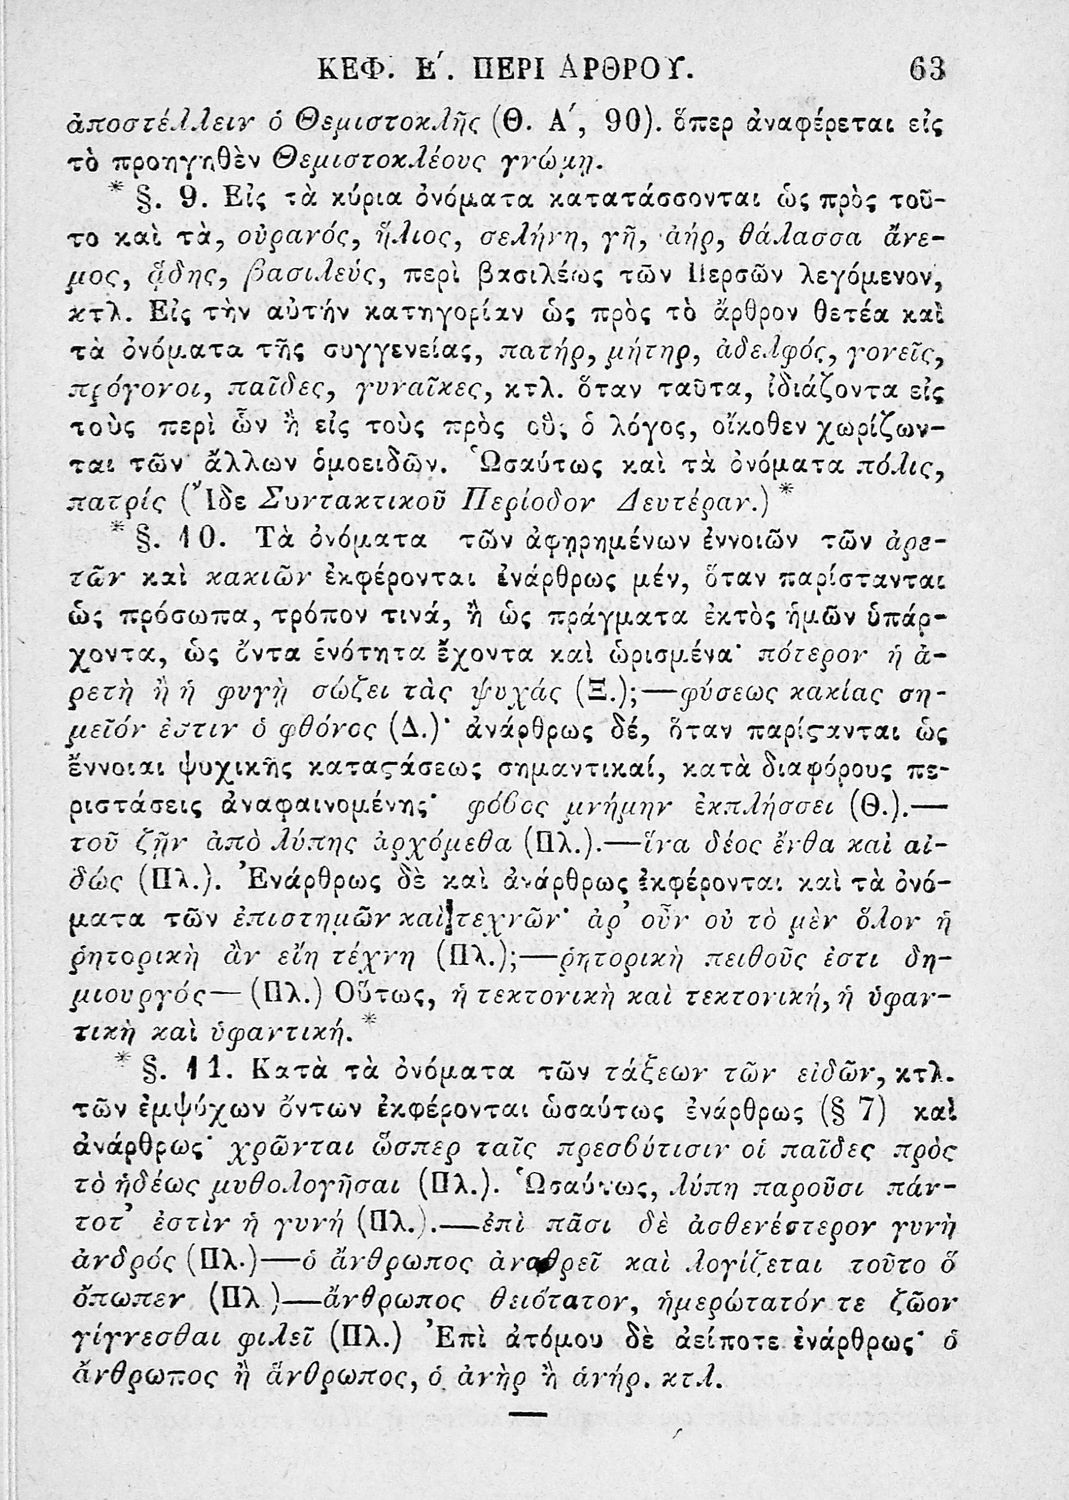 ΚΕΦ. Ε΄. ΠΕΡΙ ΑΡΘΡΟΥ. 63
ἀποστέλλειν ὁ Θεμιστοκλῆς (Θ. Α΄, 90). ὅπερ ἀναφέρεται εἰς
τὸ προηγηθὲν Θεμιστοκλέους γνώμῃ.
* §. 9. Εἰς τὰ κύρια ὀνόματα κατατάσσονται ὡς πρὸς τοῦ-
το καὶ τὰ, οὐρανός, ἥλιος, σελήνη, γῆ, ἀήρ, θάλασσα ἄνε-
μος, ᾅδης, βασιλεύς, περὶ βασιλέως τῶν Περσῶν λεγόμενον,
κτλ. Εἰς τὴν αὐτήν κατηγορίαν ὡς πρὸς τὸ ἄρθρον θετέα καὶ
τὰ ὀνόματα τῆς συγγενείας, πατήρ, μήτηρ, ἀδελφός, γονεῖς,
πρόγονοι, παῖδες, γυναῖκες, κτλ. ὅταν ταῦτα, ἰδιάζοντα εἰς
τοὺς περὶ ὧν ἢ εἰς τοὺς πρὸς οὓς ὁ λόγος, οἴκοθεν χωρίζων-
ται τῶν ἄλλων ὁμοειδῶν. Ὡσαύτως καὶ τὰ ὀνόματα πόλις,
πατρίς (Ἴδε Συντακτικοῦ Περίοδον Δευτέραν.) *
* §. 10. Τὰ ὀνόματα τῶν ἀφῃρημένων ἐννοιῶν τῶν ἀρε-
τῶν καὶ κακιῶν ἐκφέρονται ἐνάρθρως μέν, ὅταν παρίστανται
ὡς πρόσωπα, τρόπον τινά, ἢ ὡς πράγματα ἐκτὸς ἡμῶν ὑπάρ-
χοντα, ὡς ὄντα ἑνότητα ἔχοντα καὶ ὡρισμένα· πότερον ἡ ἀ-
ρετὴ ἢ ἡ φυγὴ σώζει τὰς ψυχάς (Ξ.);—φύσεως κακίας ση-
μεῖόν ἐστιν ὁ φθόνος (Δ.)· ἀνάρθρως δέ, ὅταν παρίϛανται ὡς
ἔννοιαι ψυχικῆς καταϛάσεως σημαντικαί, κατὰ διαφόρους πε-
ριστάσεις ἀναφαινομένης· φόβος μνήμην ἐκπλήσσει (Θ.).—
τοῦ ζῆν ἀπὸ λύπης ἀρχόμεθα (Πλ.).—ἵνα δέος ἔνθα καὶ αἰ-
δώς (Πλ.). Ἐνάρθρως δὲ καὶ ἀνάρθρως ἐκφέρονται καὶ τὰ ὀνό-
ματα τῶν ἐπιστημῶν καὶ τεχνῶν· ἀρ’ οὖν οὐ τὸ μὲν ὅλον ἡ
ῥητορικὴ ἂν εἴη τέχνη (Πλ.);—ῥητορικὴ πειθοῦς ἐστι δη-
μιουργός— (Πλ.) Οὕτως, ἡ τεκτονικὴ καὶ τεκτονική, ἡ ὑφαν-
τικὴ καὶ ὑφαντική. *
* §. 11. Κατὰ τὰ ὀνόματα τῶν τάξεων τῶν εἰδῶν, κτλ.
τῶν ἐμψύχων ὄντων ἐκφέρονται ὡσαύτως ἐνάρθρως (§ 7) καὶ
ἀνάρθρως· χρῶνται ὥσπερ ταῖς πρεσβύτισιν οἱ παῖδες πρὸς
τὸ ἡδέως μυθολογῆσαι (Πλ.). Ὡσαύτως, λύπη παροῦσι πάν-
τοτ’ ἐστὶν ἡ γυνή (Πλ.).—ἐπὶ πᾶσι δὲ ἀσθενέστερον γυνὴ
ἀνδρός (Πλ.)—ὁ ἄνθρωπος ἀναθρεῖ καὶ λογίζεται τοῦτο ὅ
ὄπωπεν (Πλ )—ἄνθρωπος θειότατον, ἡμερώτατόν τε ζῶον
γίγνεσθαι φιλεῖ (Πλ.) Ἐπὶ ἀτόμου δὲ ἀείποτε ἐνάρθρως· ὁ
ἄνθρωπος ἢ ἅνθρωπος, ὁ ἀνὴρ ἢ ἁνήρ. κτλ.